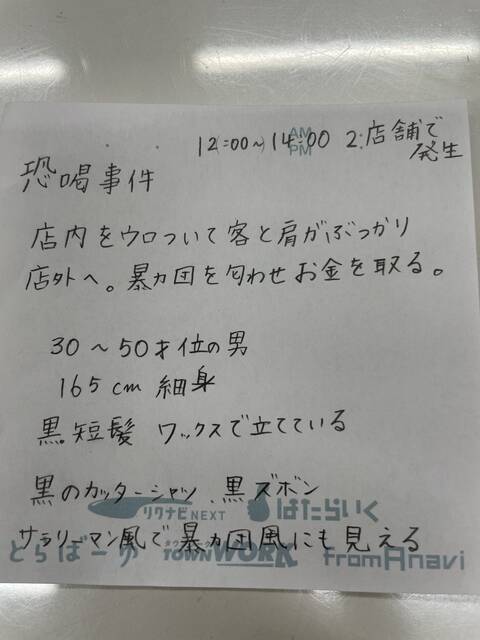 12:00~14:00 2店舗で
発生
AM
PM
恐喝事件
店内をウロついて客と肩がぶつかり
店外へ。暴力団を匂わせお金を取る。
30〜50才位の男
165cm 細身
黒短髪 ワックスで立てている
黒のカッターシャツ、黒ズボン
リクナビNEXT はたらいく
サラリーマン風で暴力団風にも見える
とらばーゆ TOWNWORK fromAnavi